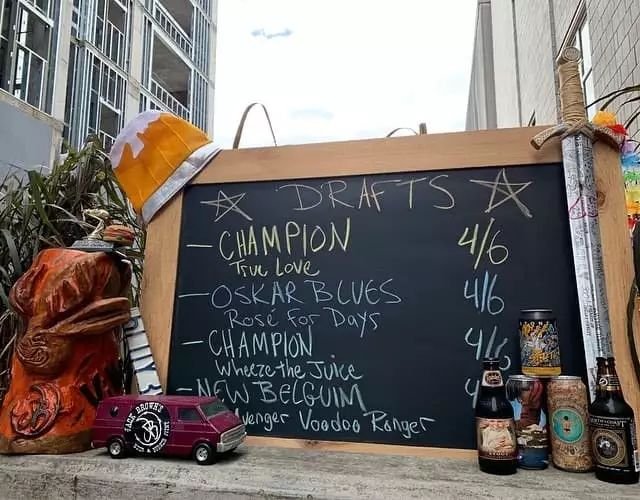 DRAFTS
— CHAMPION 4/6
True Love
— OSKAR BLUES 4/6
Rosé for Days
— CHAMPION 4/6
Wheeze the Juice
— NEW BELGUIM 4
Avenger Voodoo Ranger
JACK BROWN'S